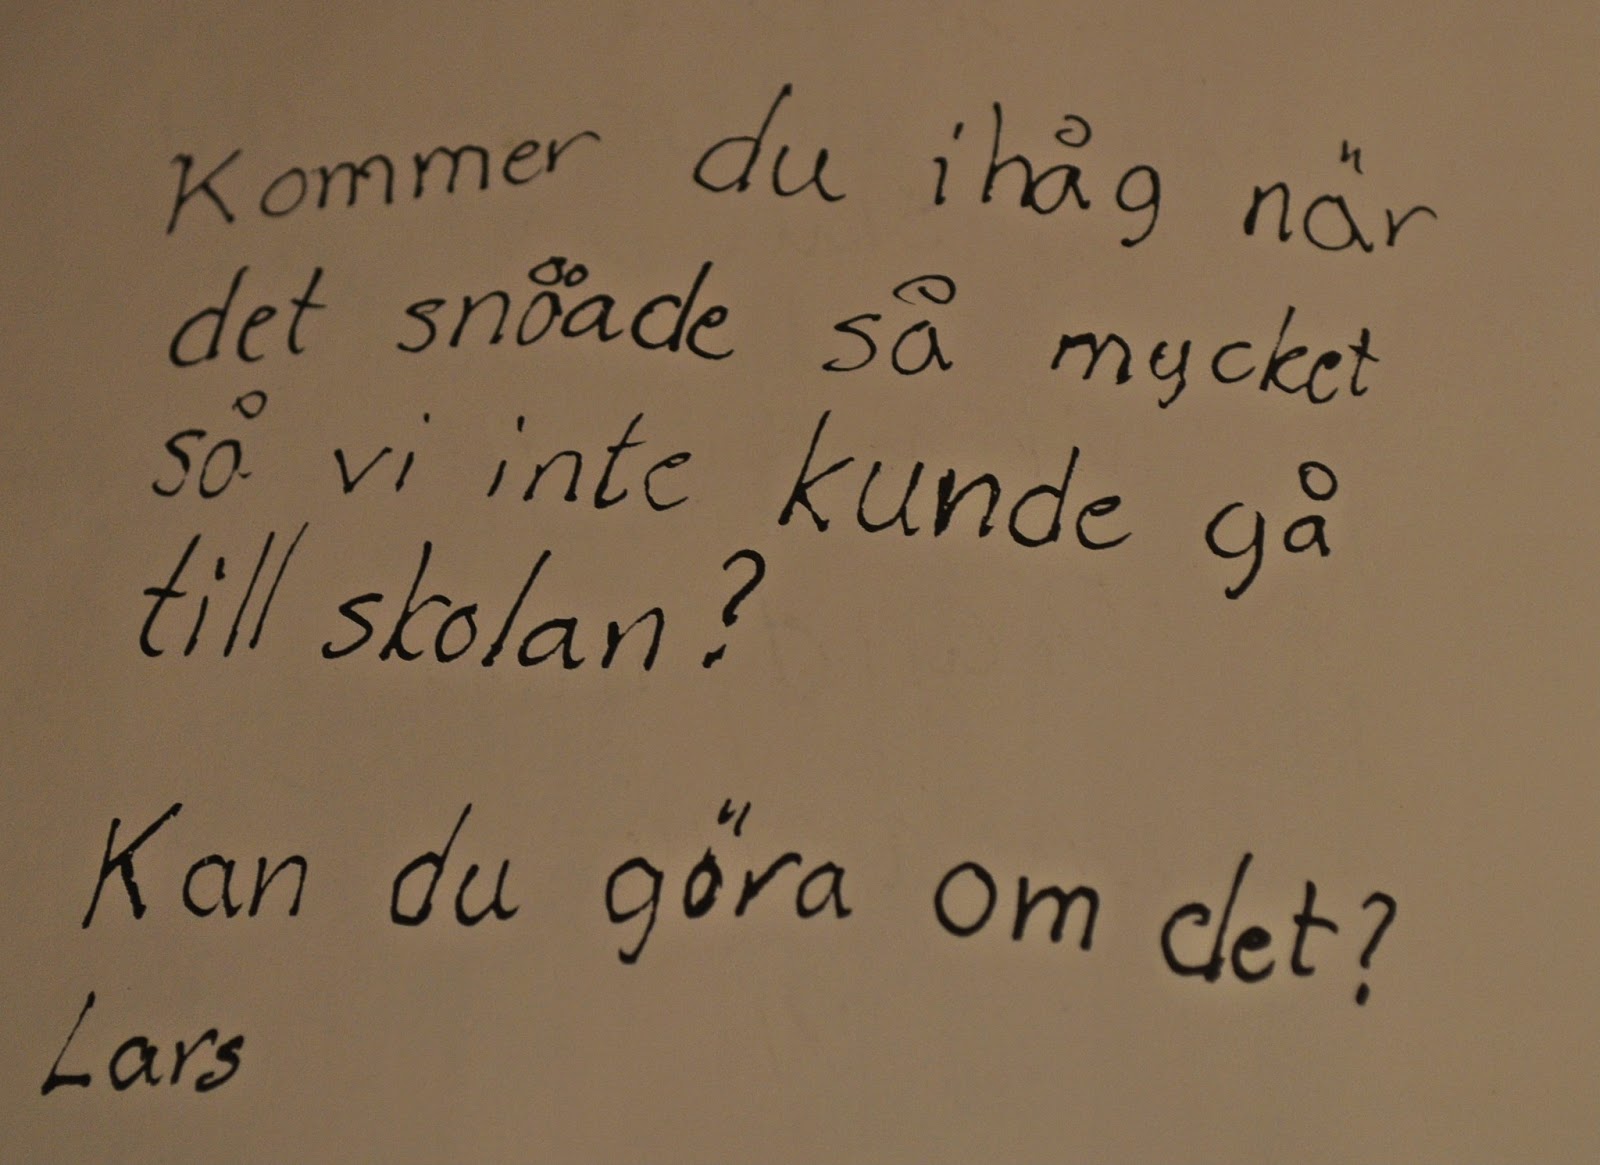 Kommer du ihåg när
det snöade så mycket
så vi inte kunde gå
till skolan?
Kan du göra om det?
Lars